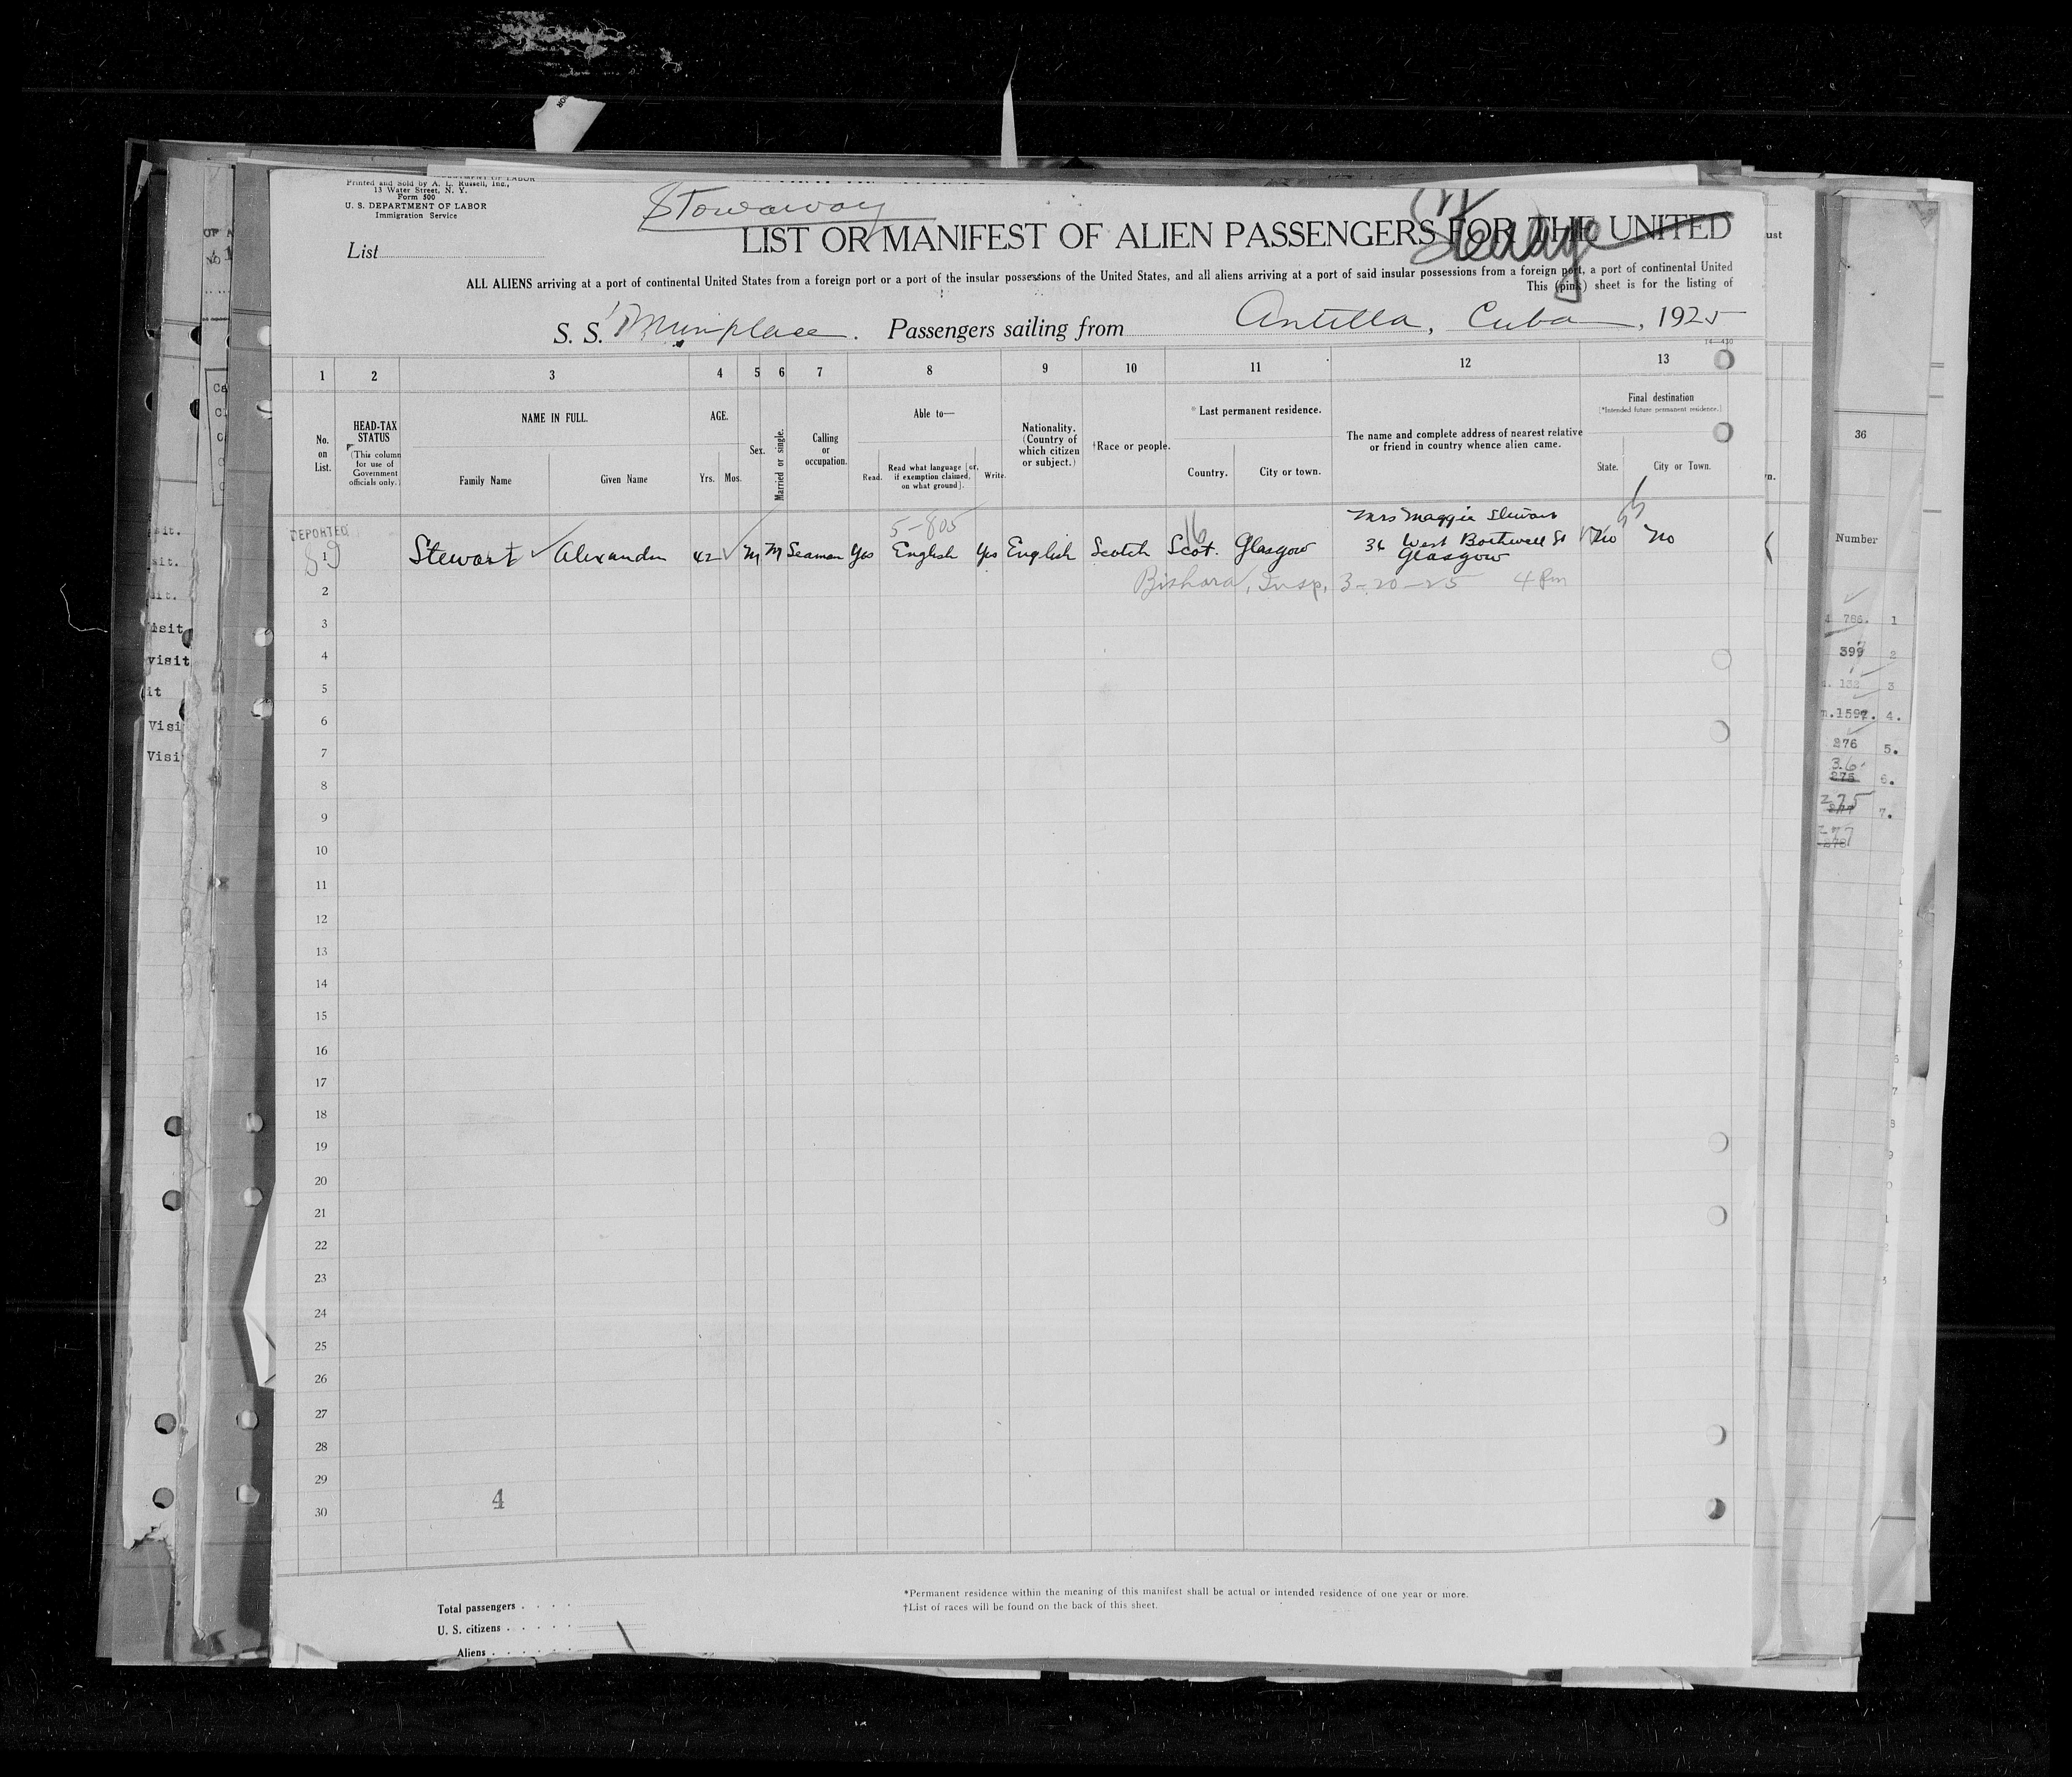 Printed and Sold by A. L. Russell, Inc.,
13 Water Street, N. Y.
Form 500
U. S. DEPARTMENT OF LABOR
Immigration Service
Stowaway
List
LIST OR MANIFEST OF ALIEN PASSENGERS FOR THE UNITED
ALL ALIENS arriving at a port of continental United States from a foreign port or a port of the insular possessions of the United States, and all aliens arriving at a port of said insular possessions from a foreign port, a port of continental United
This (pink) sheet is for the listing of
S. S. Munplace. Passengers sailing from Antilla, Cuba, 1925
1 2 3 4 5 6 7 8 9 10 11 12 13
No. on List.
HEAD-TAX STATUS
(This column for use of Government officials only.)
NAME IN FULL.
Family Name Given Name
AGE.
Yrs. Mos.
Sex.
Married or single.
Calling or occupation.
Able to—
Read. Read what language [or, if exemption claimed, on what ground]. Write.
Nationality. (Country of which citizen or subject.)
†Race or people.
*Last permanent residence.
Country. City or town.
The name and complete address of nearest relative or friend in country whence alien came.
Final destination
(*Intended future permanent residence.)
State. City or Town.
DEPORTED
5-805
16
Mrs Maggie Stewart
1 Stewart Alexander 42 M M Seaman Yes English Yes English Scotch Scot. Glasgow 36 West Bothwell St No No
Glasgow
Bishara, Insp, 3-20-25 4 Pm
2
3
4
5
6
7
8
9
10
11
12
13
14
15
16
17
18
19
20
21
22
23
24
25
26
27
28
29
30
4
Total passengers
U. S. citizens
Aliens
*Permanent residence within the meaning of this manifest shall be actual or intended residence of one year or more.
†List of races will be found on the back of this sheet.
36
Number
786. 1
399 2
132 3
1597. 4.
276 5.
36
275 6.
275
277 7.
277
278
visit
it
Visi
Visi